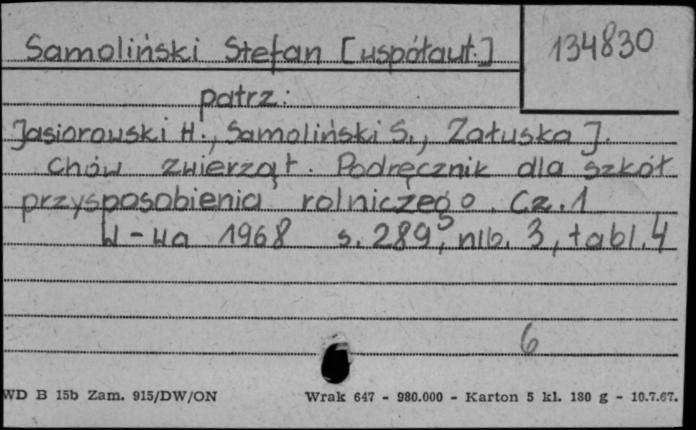 Samoliński Stefan [współaut.]
134830
patrz:
Jasiorowski H., Samoliński S., Załuska J.
Chów zwierząt. Podręcznik dla szkół
przysposobienia rolniczego. Cz. 1
W-wa 1968 s. 289, nlb. 3, tabl. 4
6
WD B 15b Zam. 915/DW/ON
Wrak 647 - 980.000 - Karton 5 kl. 180 g - 10.7.67.